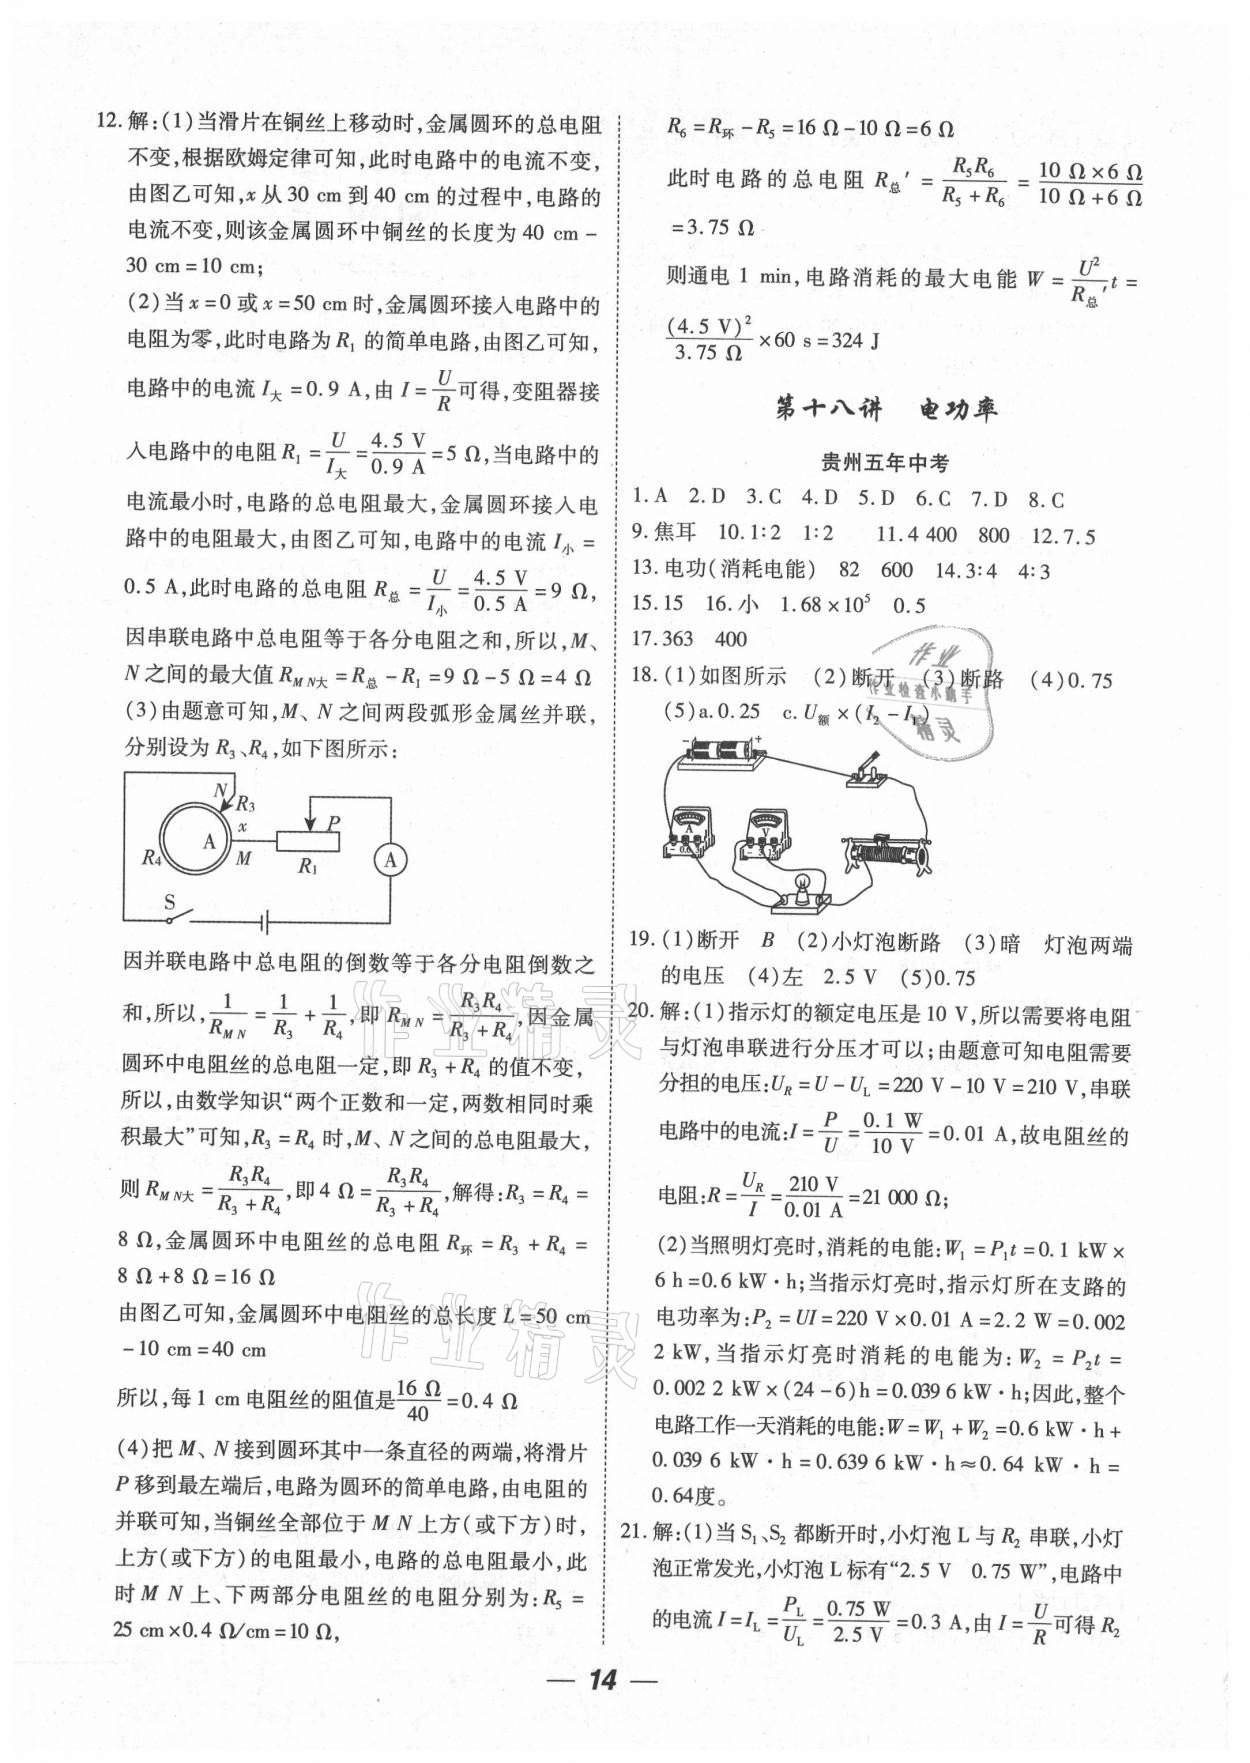 12. 解:(1)当滑片在铜丝上移动时,金属圆环的总电阻
不变,根据欧姆定律可知,此时电路中的电流不变,
由图乙可知,x 从 30 cm 到 40 cm 的过程中,电路的
电流不变,则该金属圆环中铜丝的长度为 40 cm -
30 cm = 10 cm;
(2)当 x = 0 或 x = 50 cm 时,金属圆环接入电路中的
电阻为零,此时电路为 R₁ 的简单电路,由图乙可知,
电路中的电流 I大 = 0.9 A,由 I = U/R 可得,变阻器接
入电路中的电阻 R₁ = U/I大 = 4.5 V/0.9 A = 5 Ω,当电路中的
电流最小时,电路的总电阻最大,金属圆环接入电
路中的电阻最大,由图乙可知,电路中的电流 I小 =
0.5 A,此时电路的总电阻 R总 = U/I小 = 4.5 V/0.5 A = 9 Ω,
因串联电路中总电阻等于各分电阻之和,所以,M、
N 之间的最大值 R_MN大 = R总 - R₁ = 9 Ω - 5 Ω = 4 Ω
(3)由题意可知,M、N 之间两段弧形金属丝并联,
分别设为 R₃、R₄,如下图所示:
N R₃
A x P
R₄ M R₁ A
S
因并联电路中总电阻的倒数等于各分电阻倒数之
和,所以,1/R_MN = 1/R₃ + 1/R₄,即 R_MN = R₃R₄/(R₃ + R₄),因金属
圆环中电阻丝的总电阻一定,即 R₃ + R₄ 的值不变,
所以,由数学知识“两个正数和一定,两数相同时乘
积最大”可知,R₃ = R₄ 时,M、N 之间的总电阻最大,
则 R_MN大 = R₃R₄/(R₃ + R₄),即 4 Ω = R₃R₄/(R₃ + R₄),解得:R₃ = R₄ =
8 Ω,金属圆环中电阻丝的总电阻 R环 = R₃ + R₄ =
8 Ω + 8 Ω = 16 Ω
由图乙可知,金属圆环中电阻丝的总长度 L = 50 cm
- 10 cm = 40 cm
所以,每 1 cm 电阻丝的阻值是 16 Ω/40 = 0.4 Ω
(4)把 M、N 接到圆环其中一条直径的两端,将滑片
P 移到最左端后,电路为圆环的简单电路,由电阻的
并联可知,当铜丝全部位于 MN 上方(或下方)时,
上方(或下方)的电阻最小,电路的总电阻最小,此
时 MN 上、下两部分电阻丝的电阻分别为:R₅ =
25 cm×0.4 Ω/cm = 10 Ω,
R₆ = R环 - R₅ = 16 Ω - 10 Ω = 6 Ω
此时电路的总电阻 R总′ = R₅R₆/(R₅ + R₆) = 10 Ω×6 Ω/(10 Ω+6 Ω)
= 3.75 Ω
则通电 1 min,电路消耗的最大电能 W = U²/R总′ t =
(4.5 V)²/3.75 Ω × 60 s = 324 J
第十八讲 电功率
贵州五年中考
1. A 2. D 3. C 4. D 5. D 6. C 7. D 8. C
9. 焦耳 10. 1∶2 1∶2 11. 4 400 800 12. 7.5
13. 电功(消耗电能) 82 600 14. 3∶4 4∶3
15. 15 16. 小 1.68×10⁵ 0.5
17. 363 400
18. (1)如图所示 (2)断开 (3)断路 (4)0.75
(5)a. 0.25 c. U额×(I₂ - I₁)
作业
作业检查小助手
精灵
- +
A V
- 0.6 3 - 3 15
19. (1)断开 B (2)小灯泡断路 (3)暗 灯泡两端
的电压 (4)左 2.5 V (5)0.75
20. 解:(1)指示灯的额定电压是 10 V,所以需要将电阻
与灯泡串联进行分压才可以;由题意可知电阻需要
分担的电压:U_R = U - U_L = 220 V - 10 V = 210 V,串联
电路中的电流:I = P/U = 0.1 W/10 V = 0.01 A,故电阻丝的
电阻:R = U_R/I = 210 V/0.01 A = 21 000 Ω;
(2)当照明灯亮时,消耗的电能:W₁ = P₁t = 0.1 kW×
6 h = 0.6 kW·h;当指示灯亮时,指示灯所在支路的
电功率为:P₂ = UI = 220 V×0.01 A = 2.2 W = 0.002
2 kW,当指示灯亮时消耗的电能为:W₂ = P₂t =
0.002 2 kW×(24 - 6)h = 0.039 6 kW·h;因此,整个
电路工作一天消耗的电能:W = W₁ + W₂ = 0.6 kW·h +
0.039 6 kW·h = 0.639 6 kW·h ≈ 0.64 kW·h =
0.64度。
21. 解:(1)当 S₁、S₂ 都断开时,小灯泡 L 与 R₂ 串联,小灯
泡正常发光,小灯泡 L 标有“2.5 V 0.75 W”,电路中
的电流 I = I_L = P_L/U_L = 0.75 W/2.5 V = 0.3 A,由 I = U/R 可得 R₂
作业精灵
作业精灵
— 14 —